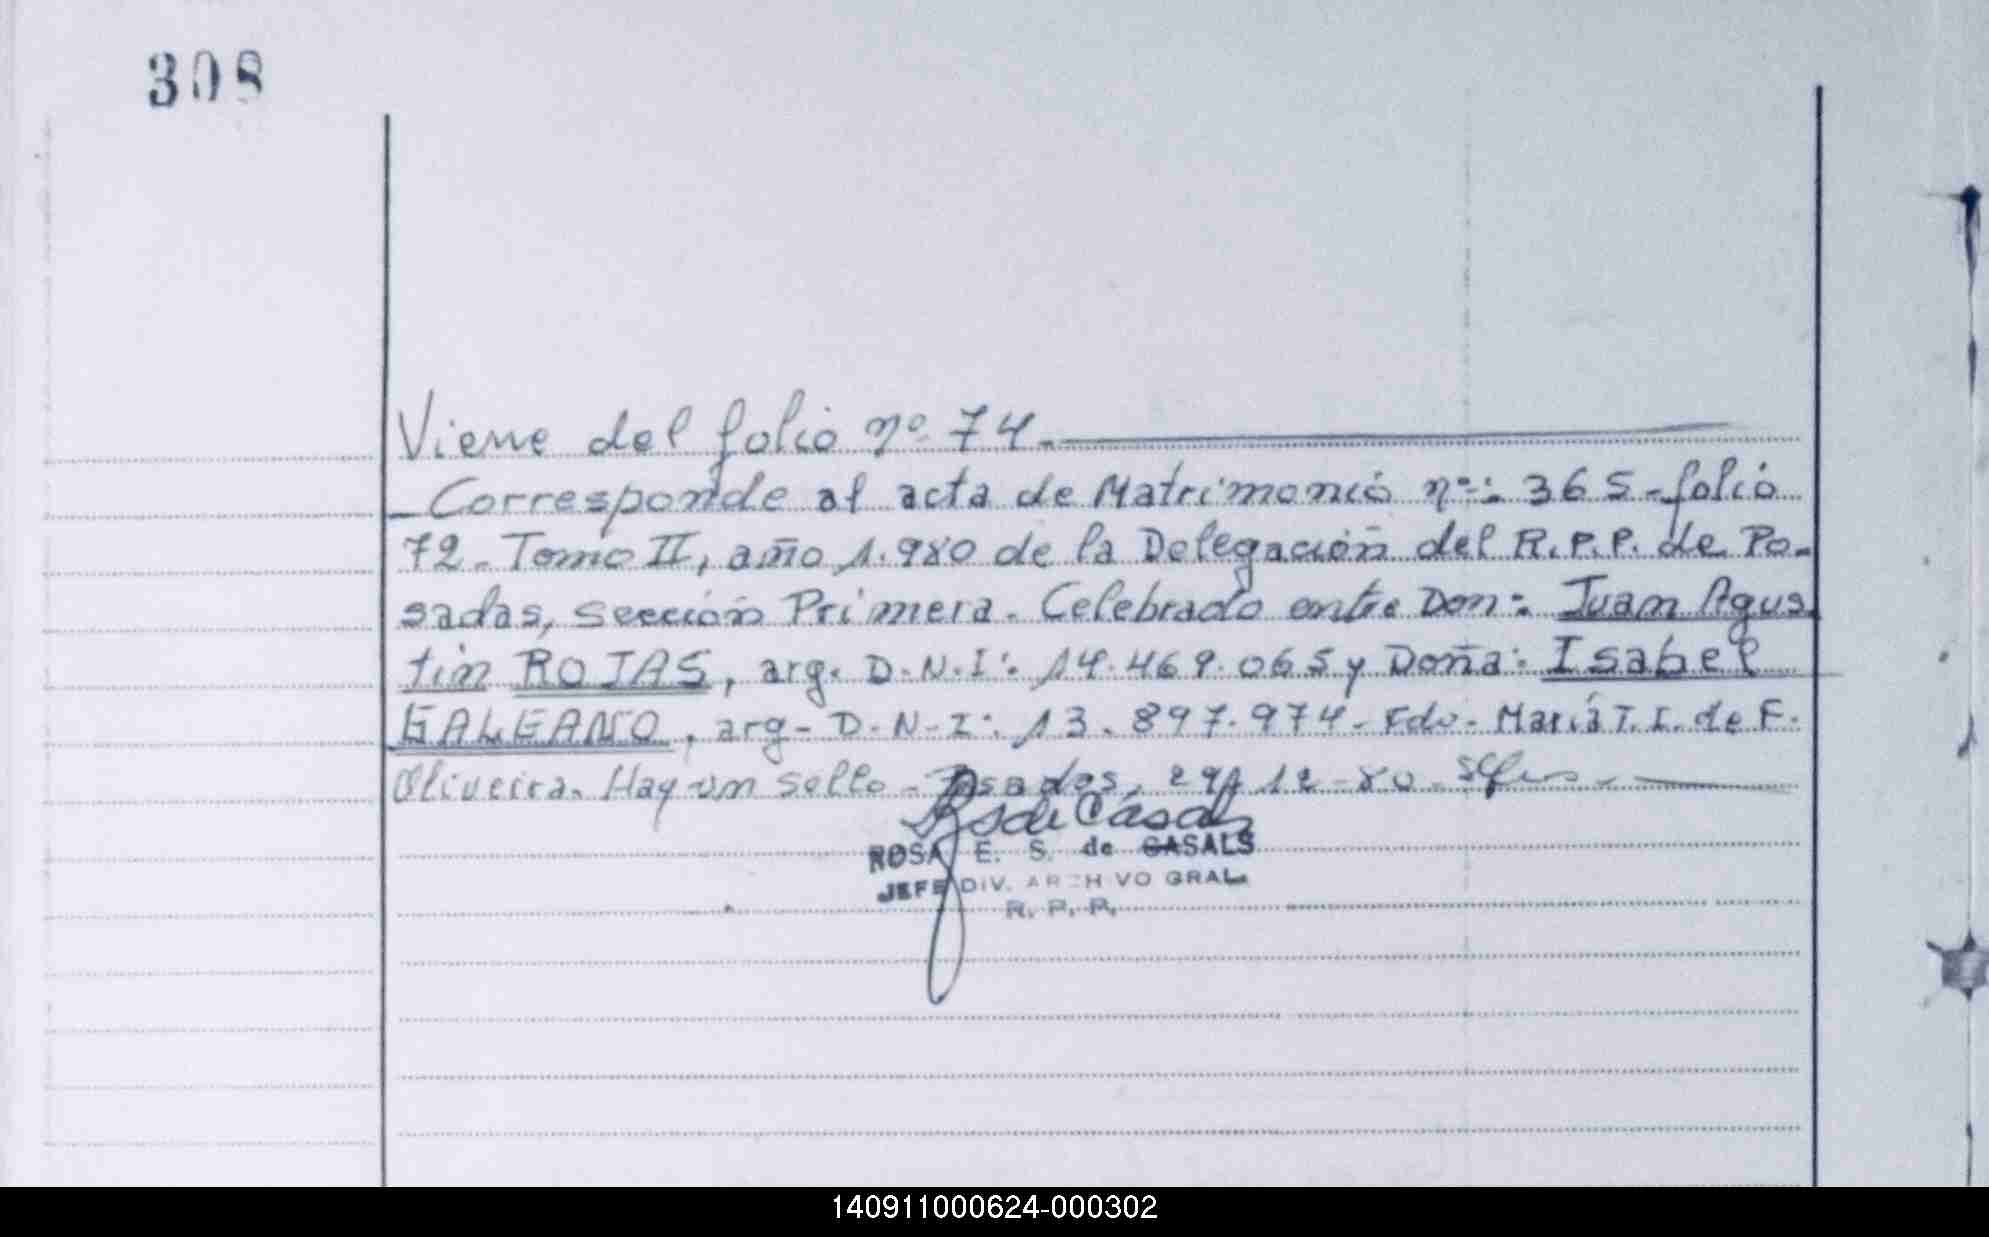 308
Viene del folio nº 74.
Corresponde al acta de Matrimonio nº: 365 - folio
72 - Tomo II, año 1.980 de la Delegación del R.P.P. de Po-
sadas, Sección Primera. Celebrado entre Don: Juan Agus
tin ROJAS, arg. D.N.I: 14.469.065 y Doña: Isabel
GALEANO, arg - D.N.I: 13.897.974 - Fdo - María T. I. de F.
Oliveira. Hay un sello - Posadas, 29/12-80.
ROSA E. S. de CASALS
JEFE DIV. ARCHIVO GRAL.
R. P. P.
140911000624-000302